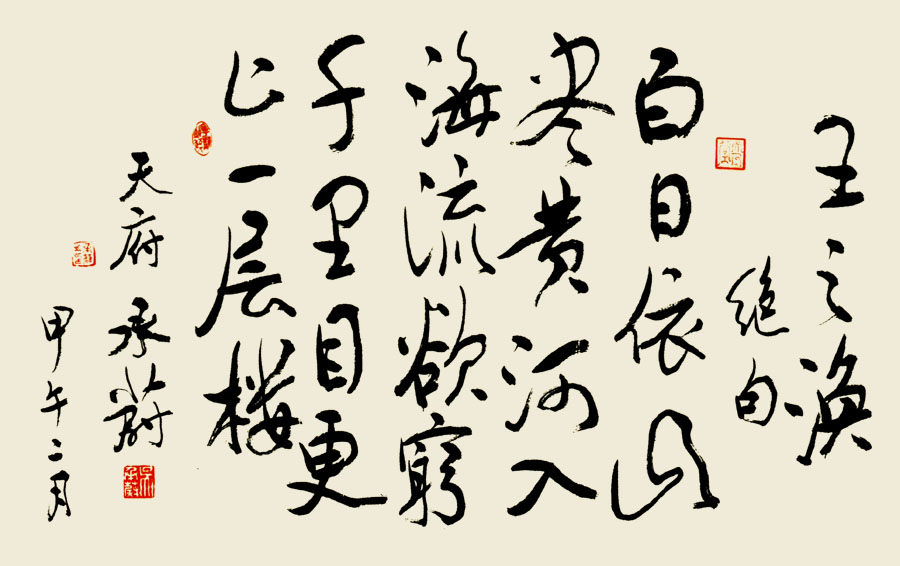 王之涣
绝句
白日依山
尽黄河入
海流欲穷
千里目更
上一层楼
天府 承蔚
甲午二月